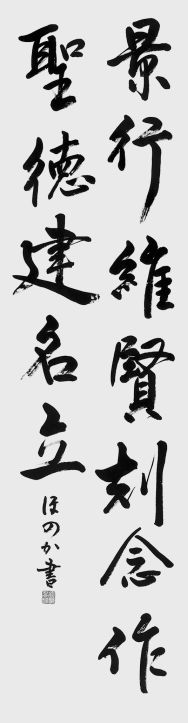 景行維賢剋念作
聖徳建名立
ほのか書